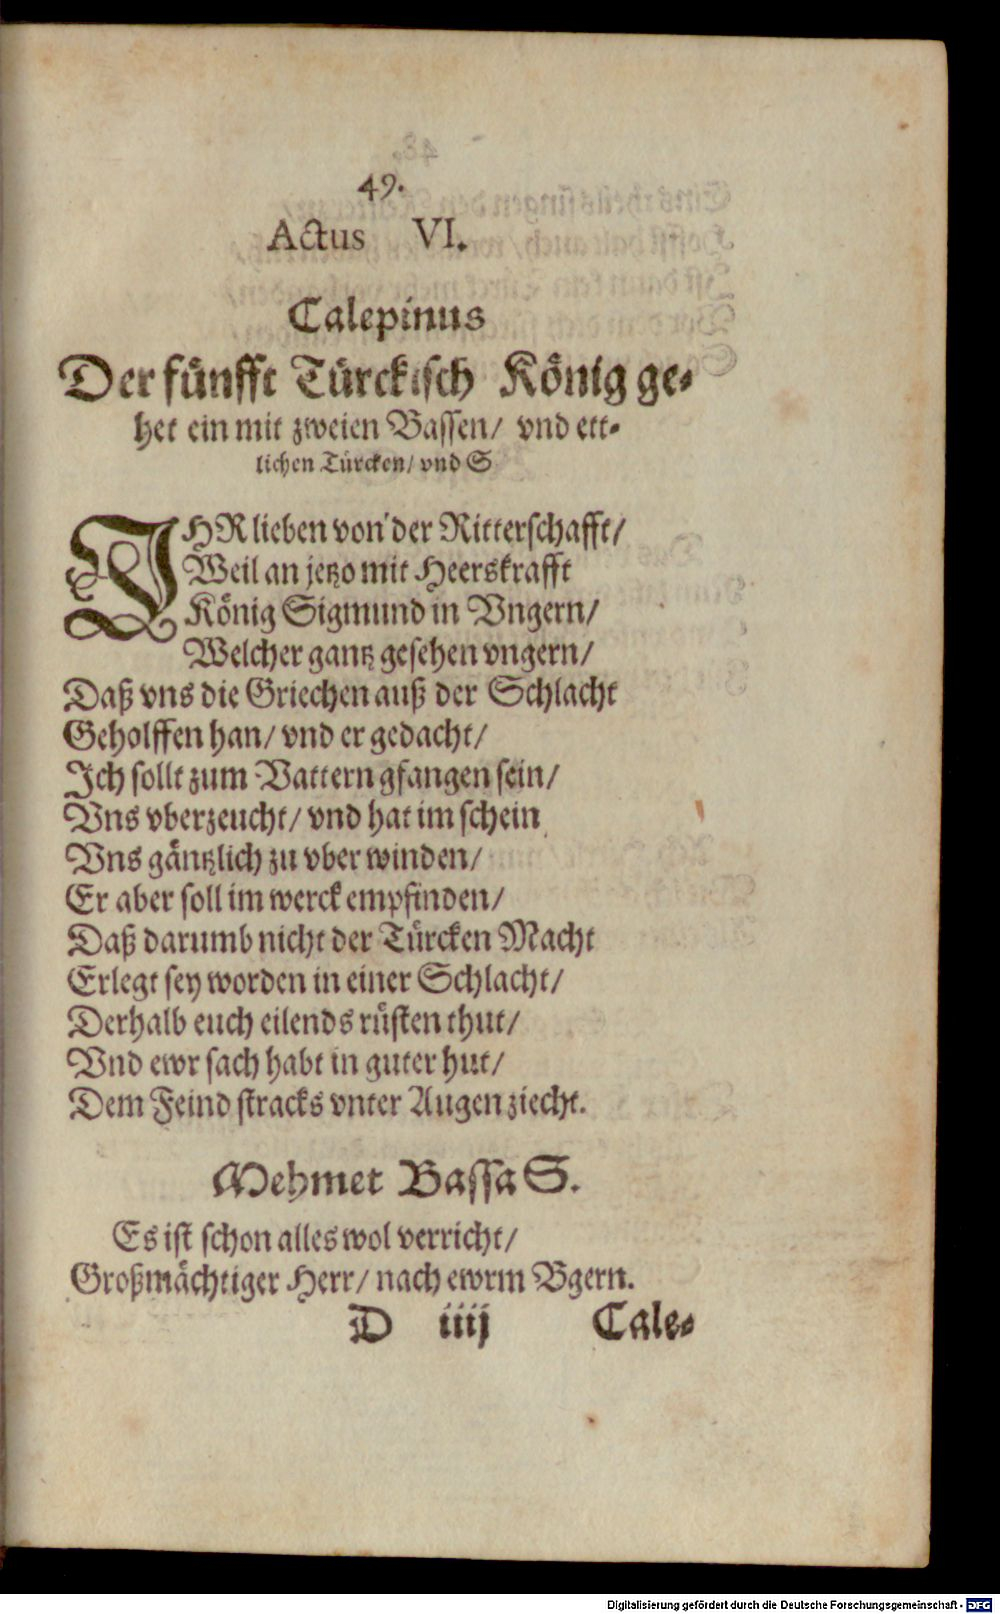 49.
Actus VI.
Calepinus
Der fünfft Türckisch König ge-
het ein mit zweien Bassen/ vnd ett-
lichen Türcken/ vnd S
IHR lieben von der Ritterschafft/
Weil an jetzo mit Heerskrafft
König Sigmund in Vngern/
Welcher gantz gesehen vngern/
Daß vns die Griechen auß der Schlacht
Geholffen han/ vnd er gedacht/
Ich sollt zum Vattern gfangen sein/
Vns vberzeucht/ vnd hat im schein
Vns gäntzlich zu vber winden/
Er aber soll im werck empfinden/
Daß darumb nicht der Türcken Macht
Erlegt sey worden in einer Schlacht/
Derhalb euch eilends rüsten thut/
Vnd ewr sach habt in guter hut/
Dem Feind stracks vnter Augen ziecht.
Mehmet Bassa S.
Es ist schon alles wol verricht/
Großmächtiger Herr/ nach ewrm Bgern.
D iiij Cale-
Digitalisierung gefördert durch die Deutsche Forschungsgemeinschaft - DFG